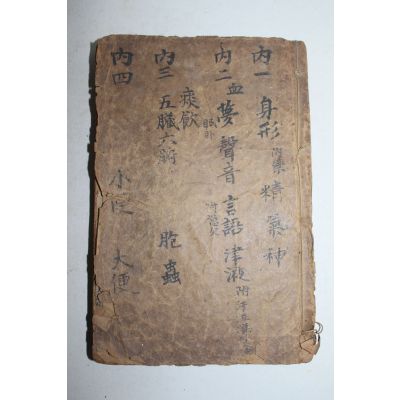 內一 身形 精 氣 神
內二 血 夢 聲音 言語 津液 附
痰飮
內三 五臟六腑 胞 蟲
內四 小便 大便